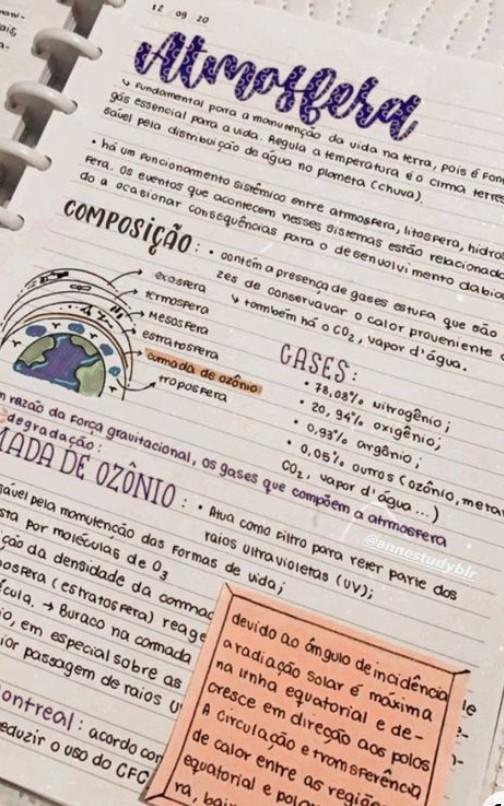 12 09 20
Atmosfera
↳ Fundamental para a manutenção da vida na terra, pois é
gás essencial para a vida. Regula a temperatura e o clima
sável pela distribuição de água no planeta (chuva).
• há um funcionamento sistêmico entre atmosfera, litosfera,
fera. Os eventos que acontecem nesses sistemas estão
do a ocasionar consequências para o desenvolvimento da
COMPOSIÇÃO: • contém a presença de gases estufa que são
zes de conservavar o calor proveniente
↳ também há o CO2, vapor d'água.
exosfera
termosfera
mesosfera
estratosfera
camada de ozônio
troposfera
GASES:
• 78,08% nitrogênio;
• 20,94% oxigênio;
• 0,93% argônio;
• 0,05% outros (ozônio,
CO2, vapor d'água...)
razão da força gravitacional, os gases que compõem a atmosfera
degradação:
DE OZÔNIO: • Atua como filtro para reter parte dos
raios ultravioletas (UV);
@annestudyblr
pela manutenção das formas de vida;
por moléculas de O3
da densidade da camada
(estratosfera) reage
→ Buraco na camada
em especial sobre as
passagem de raios
acordo
reduzir o uso do CFC
devido ao ângulo de incidência
a radiação solar é máxima
na linha equatorial e de-
cresce em direção aos polos
A circulação e transferência
de calor entre as
equatorial e